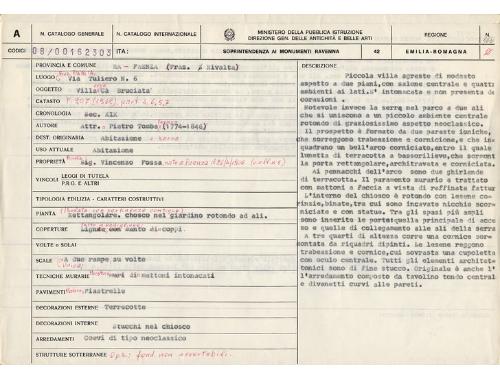 A
N. CATALOGO GENERALE
N. CATALOGO INTERNAZIONALE
MINISTERO DELLA PUBBLICA ISTRUZIONE
DIREZIONE GEN. DELLE ANTICHITÀ E BELLE ARTI
REGIONE
N.
CODICI
08/00162303
ITA:
SOPRINTENDENZA AI MONUMENTI RAVENNA
42
EMILIA-ROMAGNA
PROVINCIA E COMUNE RA - FAENZA (Fraz. Rivalta)
LUOGO Via Tuliero N. 6
OGGETTO Villa Cà Bruciata
CATASTO
CRONOLOGIA Sec. XIX
AUTORE Attr. Pietro Tomba (1774-1846)
DEST. ORIGINARIA Abitazione
USO ATTUALE Abitazione
PROPRIETÀ Sig. Vincenzo Fossa
VINCOLI LEGGI DI TUTELA
P.R.G. E ALTRI
TIPOLOGIA EDILIZIA - CARATTERI COSTRUTTIVI
PIANTA Rettangolare, chosco nel giardino rotondo ad ali.
COPERTURE Lignee con manto di coppi.
VOLTE o SOLAI
SCALE A due rampe su volte
TECNICHE MURARIE Muri di mattoni intonacati
PAVIMENTI Piastrelle
DECORAZIONI ESTERNE Terrecotte
DECORAZIONI INTERNE Stucchi nel chiosco
ARREDAMENTI Coevi di tipo neoclassico
STRUTTURE SOTTERRANEE
DESCRIZIONE
Piccola villa agreste di modesto
aspetto a due piani, con salone centrale e quattro
ambienti ai lati. E' intonacata e non presenta de
corazioni.
Notevole invece la serra nel parco a due ali
che si uniscono a un piccolo ambiente centrale
rotondo di graziosissimo aspetto neoclassico.
Il prospetto è formato da due paraste ioniche,
che sorreggono trabeazione e cornicione, e che in
quadrano un bell'arco corniciato, entro il quale
lunetta di terracotta a bassorilievo, che sormonta
la porta rettangolare, architravata e corniciata.
Ai pennacchi dell'arco sono due ghirlande
di terracotta. Il paramento murario è trattato
con mattoni a faccia a vista di raffinata fattura
L'interno del chiosco è rotondo con lesene co
rinzie, binate, tra cui sono incavate nicchie
corniciate e con statue. Tra gli spazi più ampli
sono inserite le porte: quella principale di acces
so e quelle di collegamento alle ali della serra
A tre quarti di altezza corre una cornice sor
montata da riquadri dipinti. Le lesene reggono
trabeazione e cornice, cui sovrasta una cupoletta
con oculo centrale. Tutti gli elementi architet
tonici sono di fine stucco. Originale è anche l'
l'arredamento composto da tavolino tondo central
e divanetti curvi alle pareti.